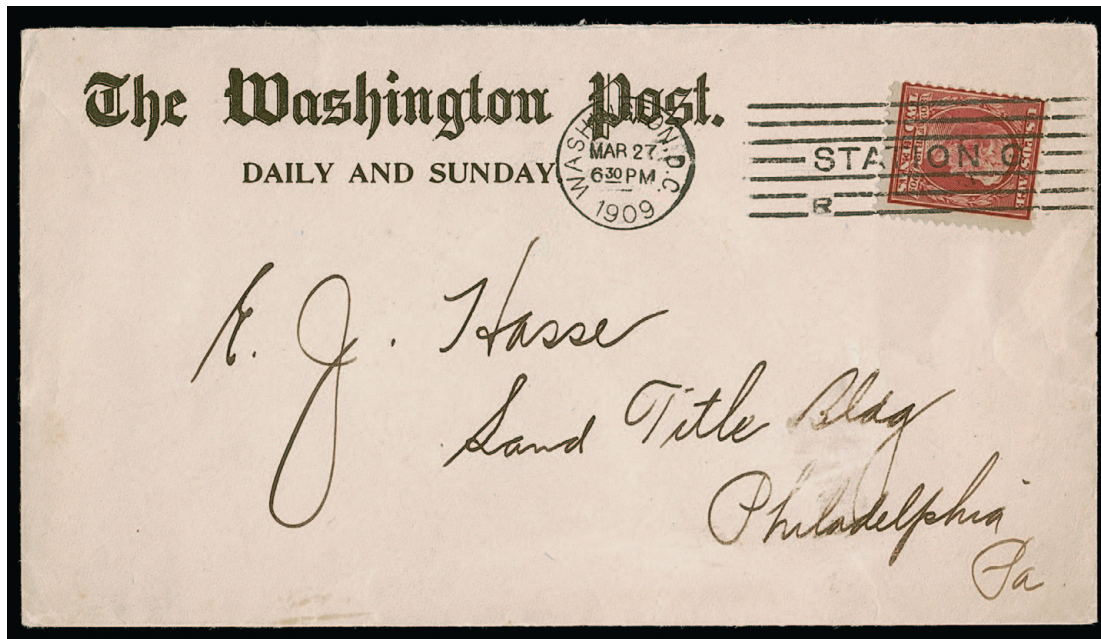 The Washington Post.
DAILY AND SUNDAY
WASHINGTON, D.C.
MAR 27
6 30 PM
1909
STATION C
R
E. J. Hasse
Land Title Bldg
Philadelphia
Pa